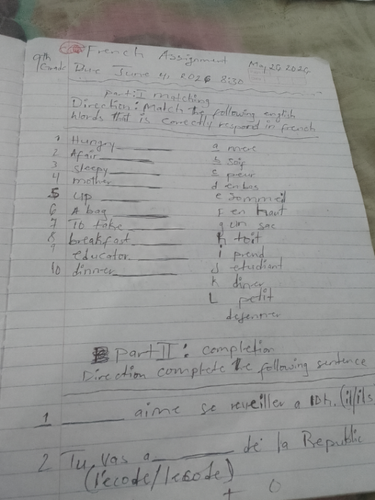 French Assignment May 26 2026
9th Grade Due June 4, 2026 8:30
part I matching
Direction: Match the following english
words that is correctly respond in french
1 Hungry
2 Afair
3 Sleepy
4 mother
5 up
6 A bag
7 To take
8 breakfast
9 educator
10 dinner
a mere
b soif
c peur
d en bas
e sommeil
f en haut
g un sac
h toit
i prend
J etudiant
k diner
L petit
dejeuner
part II: completion
Direction complete the following sentence
1 aime se reveiller a 10h. (il/ils
2 Tu vas a de la Republic
(l'ecode/lecode)